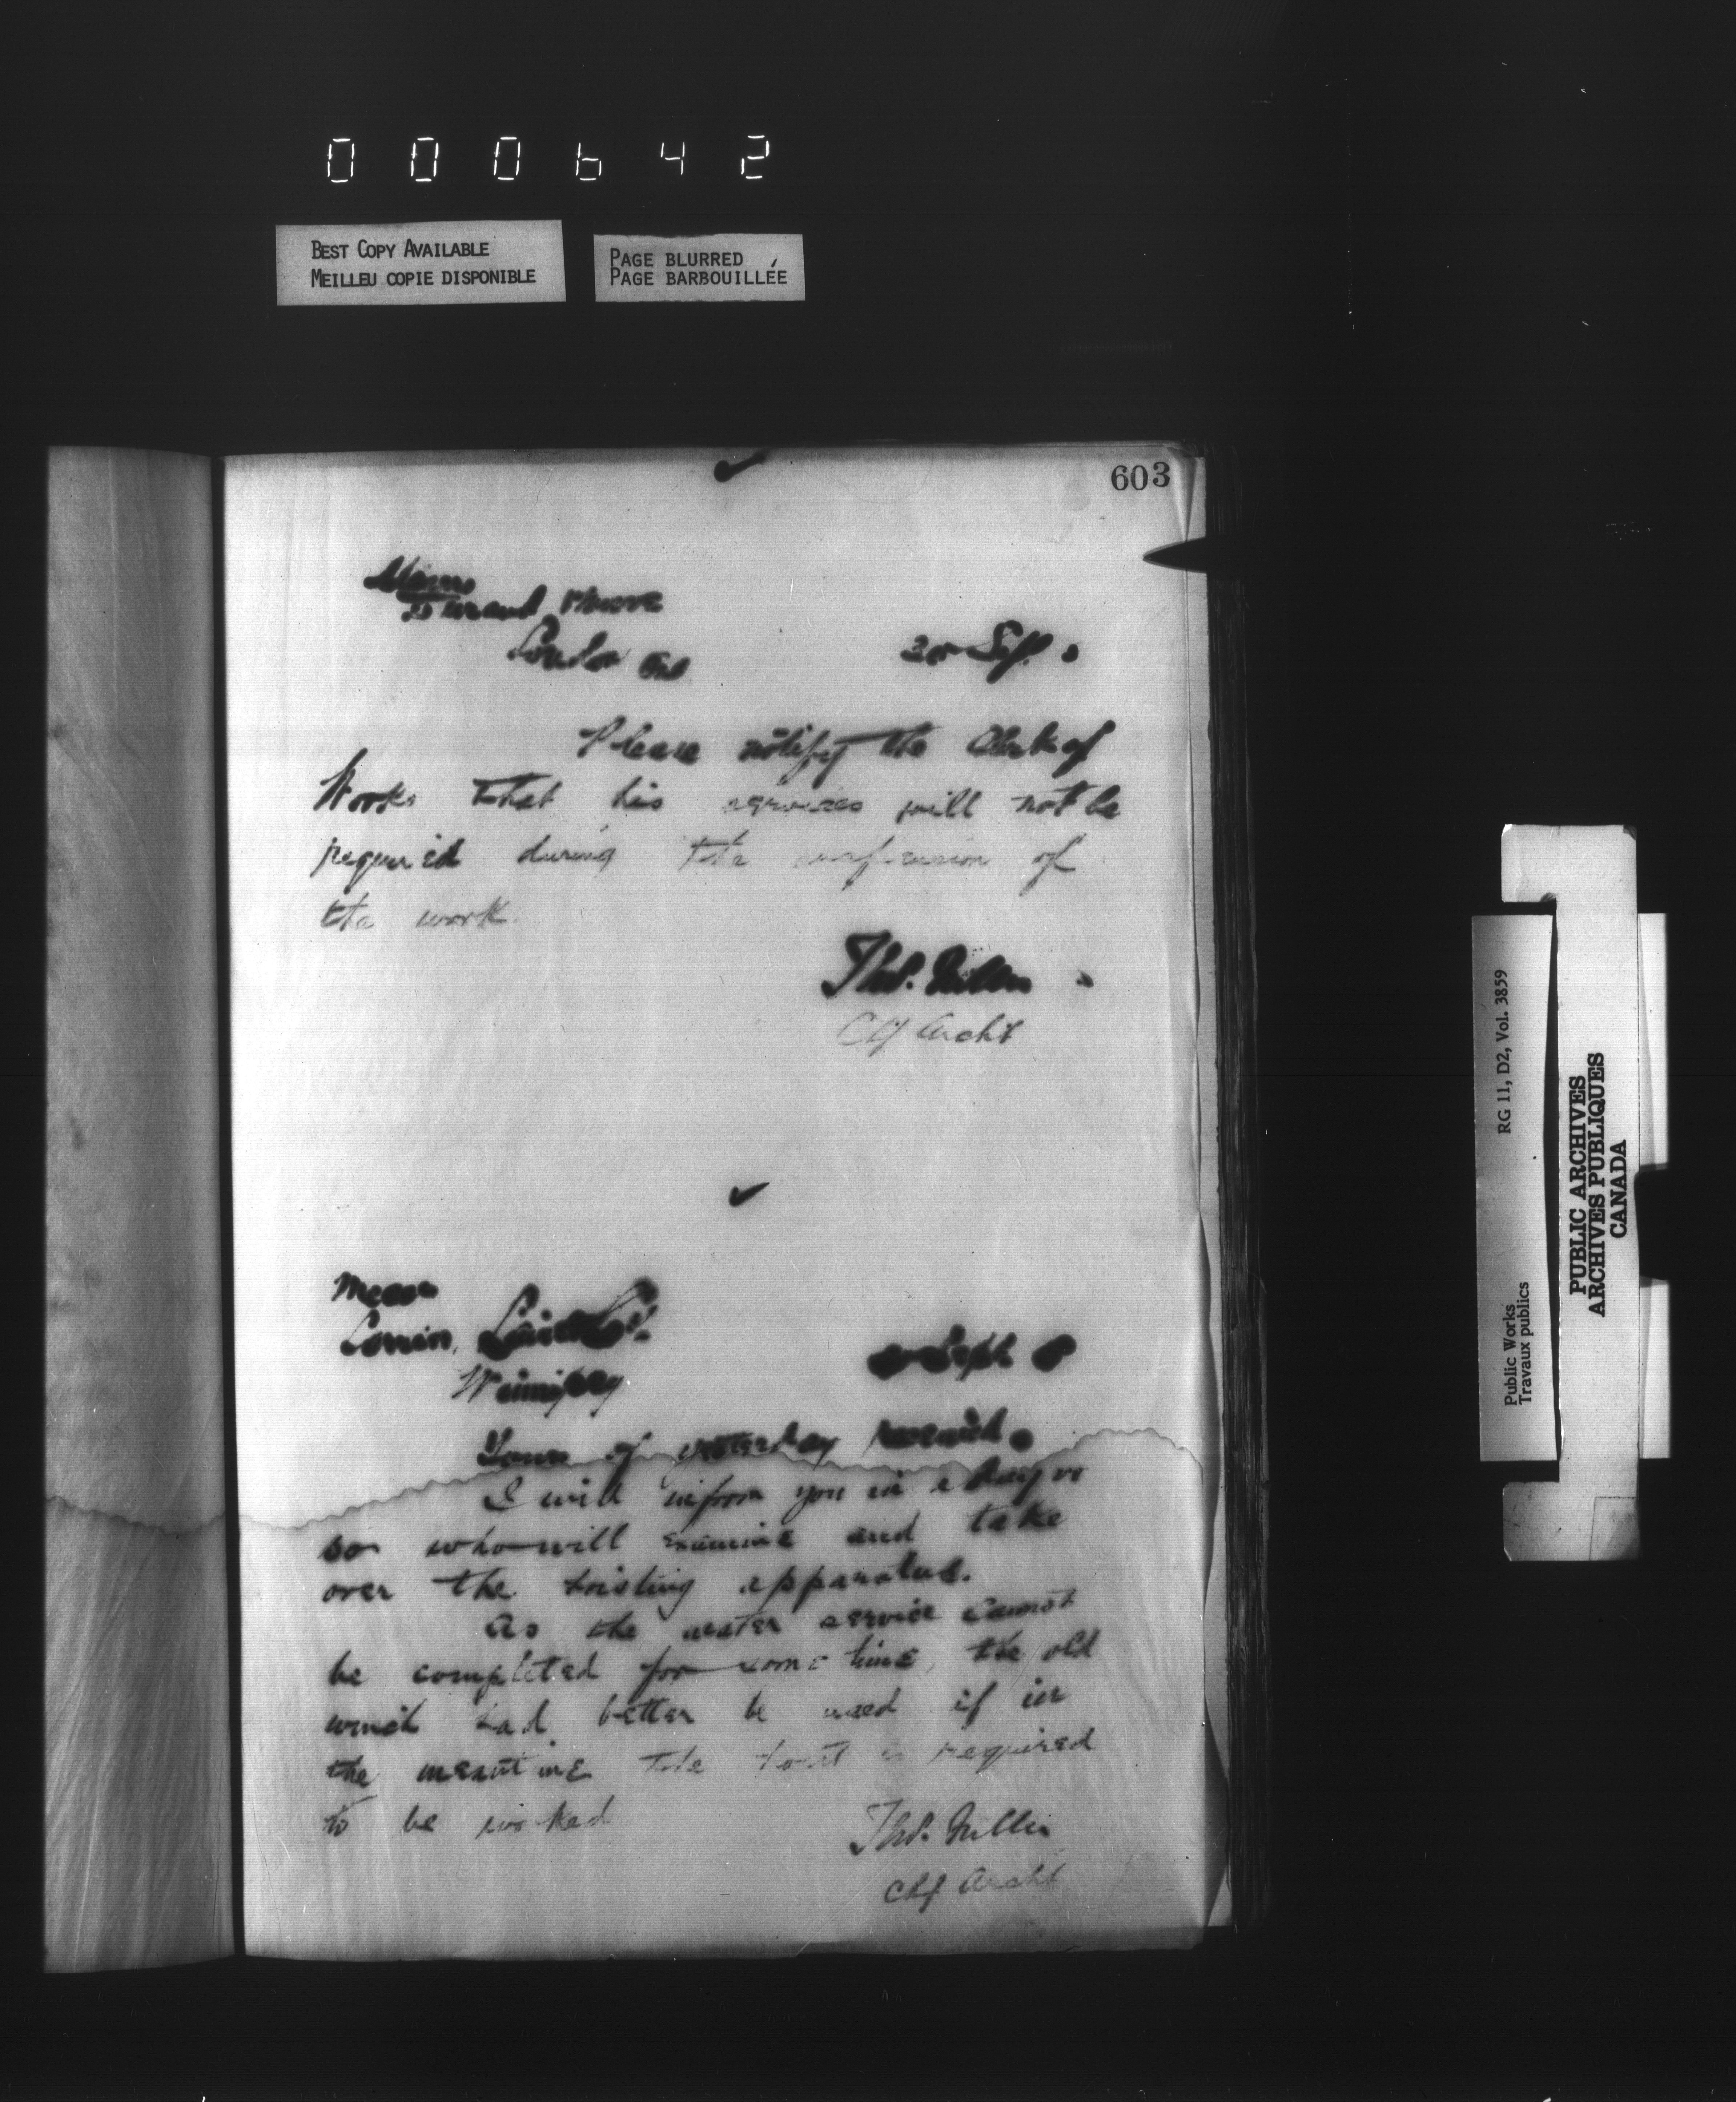 000642
BEST COPY AVAILABLE
MEILLEU COPIE DISPONIBLE
PAGE BLURRED
PAGE BARBOUILLÉE
603
Messrs
Durand Moore
London Ont
Sept.
Please notify the Clerk of
Works that his services will not be
required during the suspension of
the work
Thos. Fuller
Chf Archt
Messrs
Winnipeg
Sept
Yours of yesterday received.
I will inform you in a day or
so who will examine and take
over the hoisting apparatus.
As the water service cannot
be completed for some time, the old
winch had better be used if in
the meantime the is required
to be worked
Thos. Fuller
Chf Archt
RG 11, D2, Vol. 3859
Public Works
Travaux publics
PUBLIC ARCHIVES
ARCHIVES PUBLIQUES
CANADA